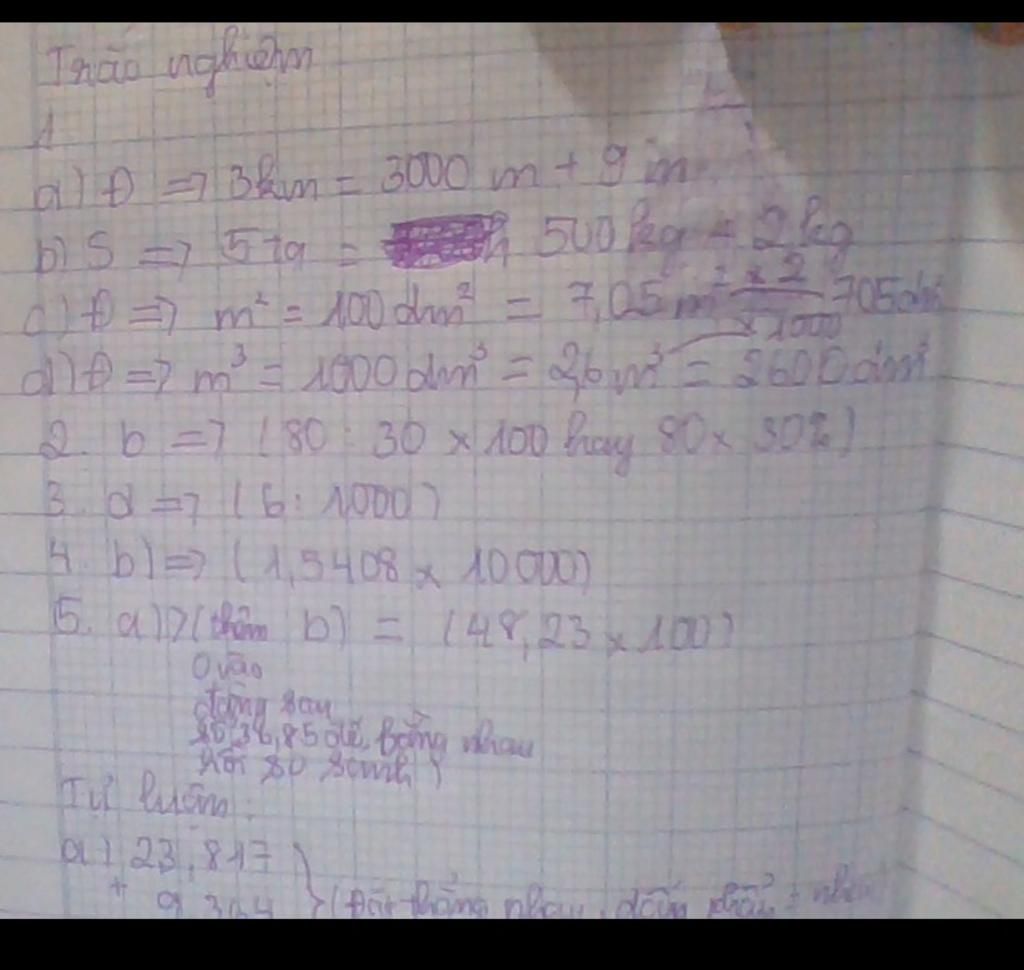 Trắc nghiệm
1.
a) Đ => 3km = 3000 m + 9 m
b) S => 5 tạ = 500 kg 2 kg
c) Đ => m² = 100 dm² = 7,05 m² x 2 705 dm
x 1000
d) Đ => m³ = 1000 dm³ = 2,6 m³ = 2600 dm³
2. b => (80 : 30 x 100 hay 80 x 30%)
3. d => (6 : 1000)
4. b) => (1,5408 x 10000)
5. a) > (thêm b) = (48,23 x 100)
0 vào
đằng sau
số 36,85 để bằng nhau
rồi so sánh)
Tự luận:
a) 23,817
+ 9,304 (Đặt thẳng nhau, dấu phẩy